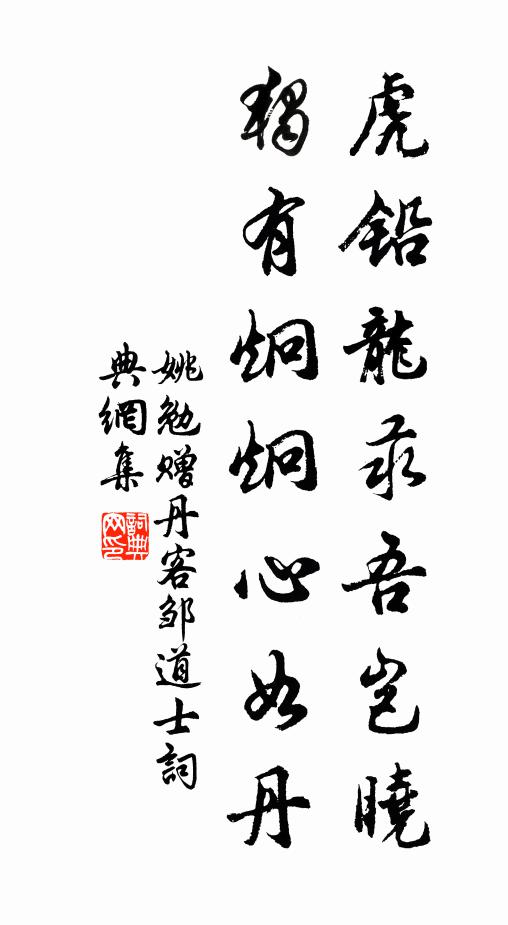 虎鉛龍汞吾豈曉
獨有炯炯心如丹
姚勉贈丹客邹道士詞
典網集
詞典
网印